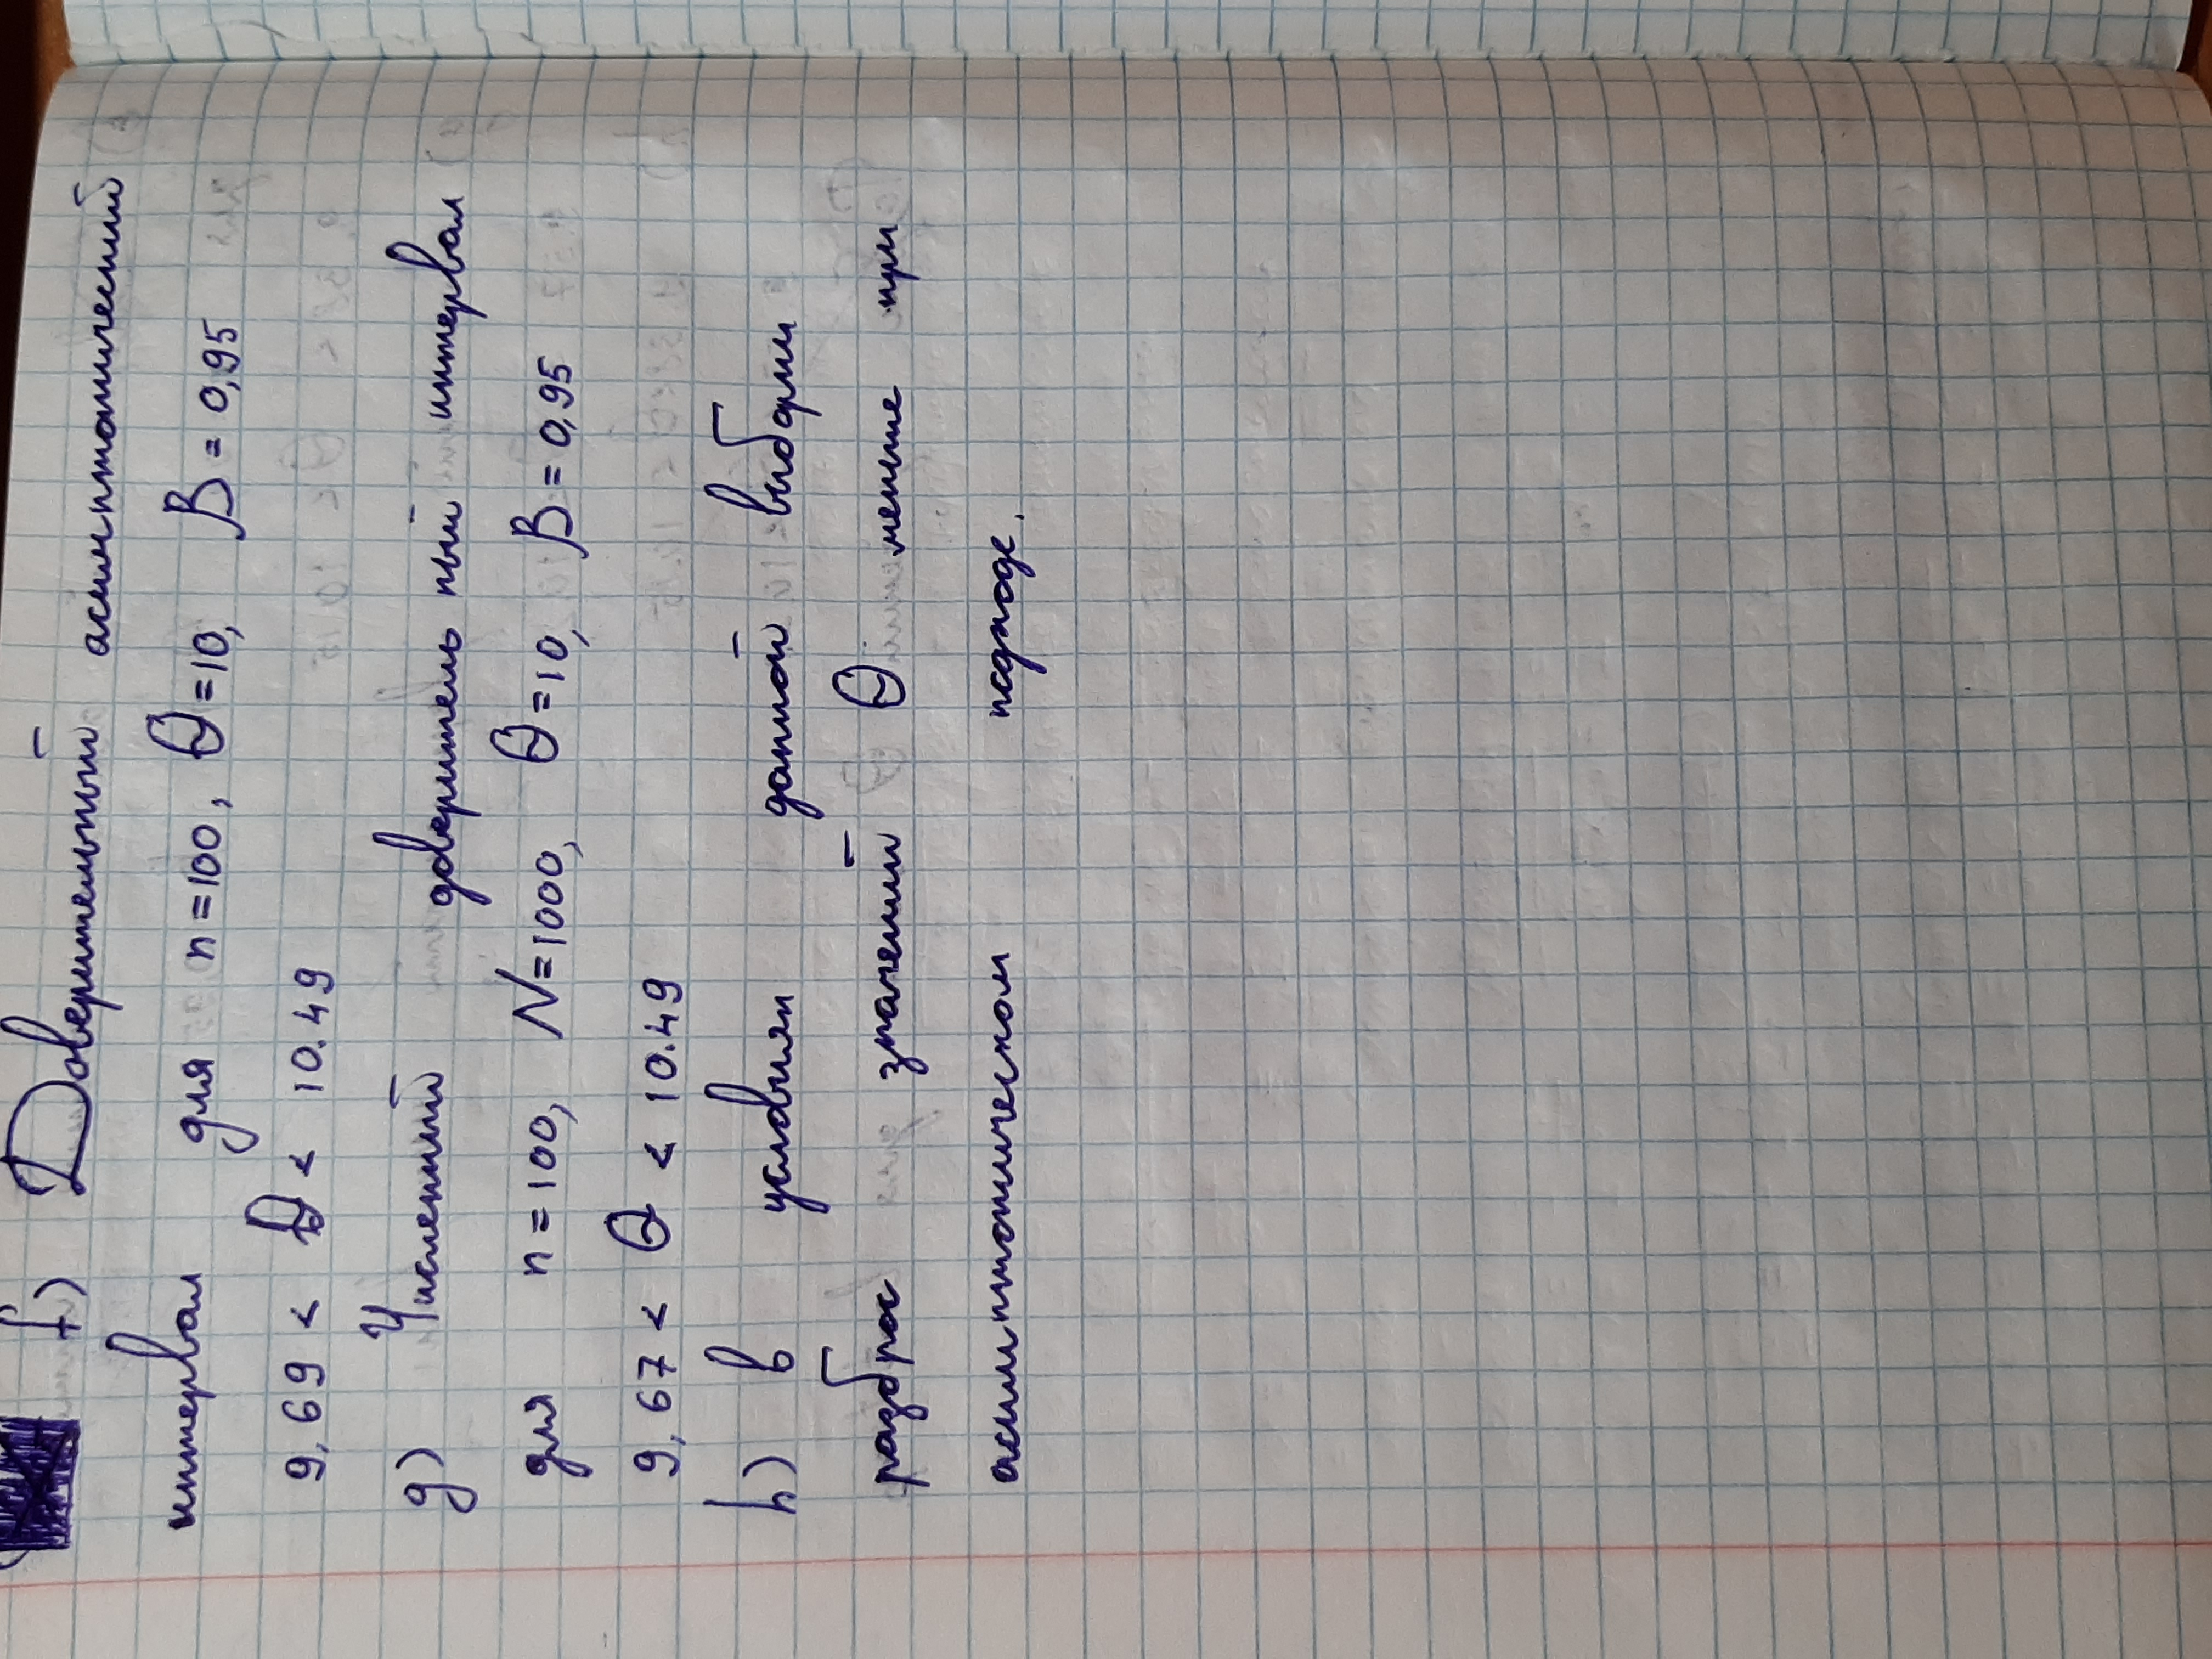 f) Доверительный асимптотический
интервал для n=100, θ=10, β=0,95
9,69 < θ < 10.49
g) Численный доверительный интервал
для n=100, N=1000, θ=10, β=0,95
9,67 < θ < 10.49
h) в условиях данной выборки
разброс значений θ меньше при
асимптотическом подходе.